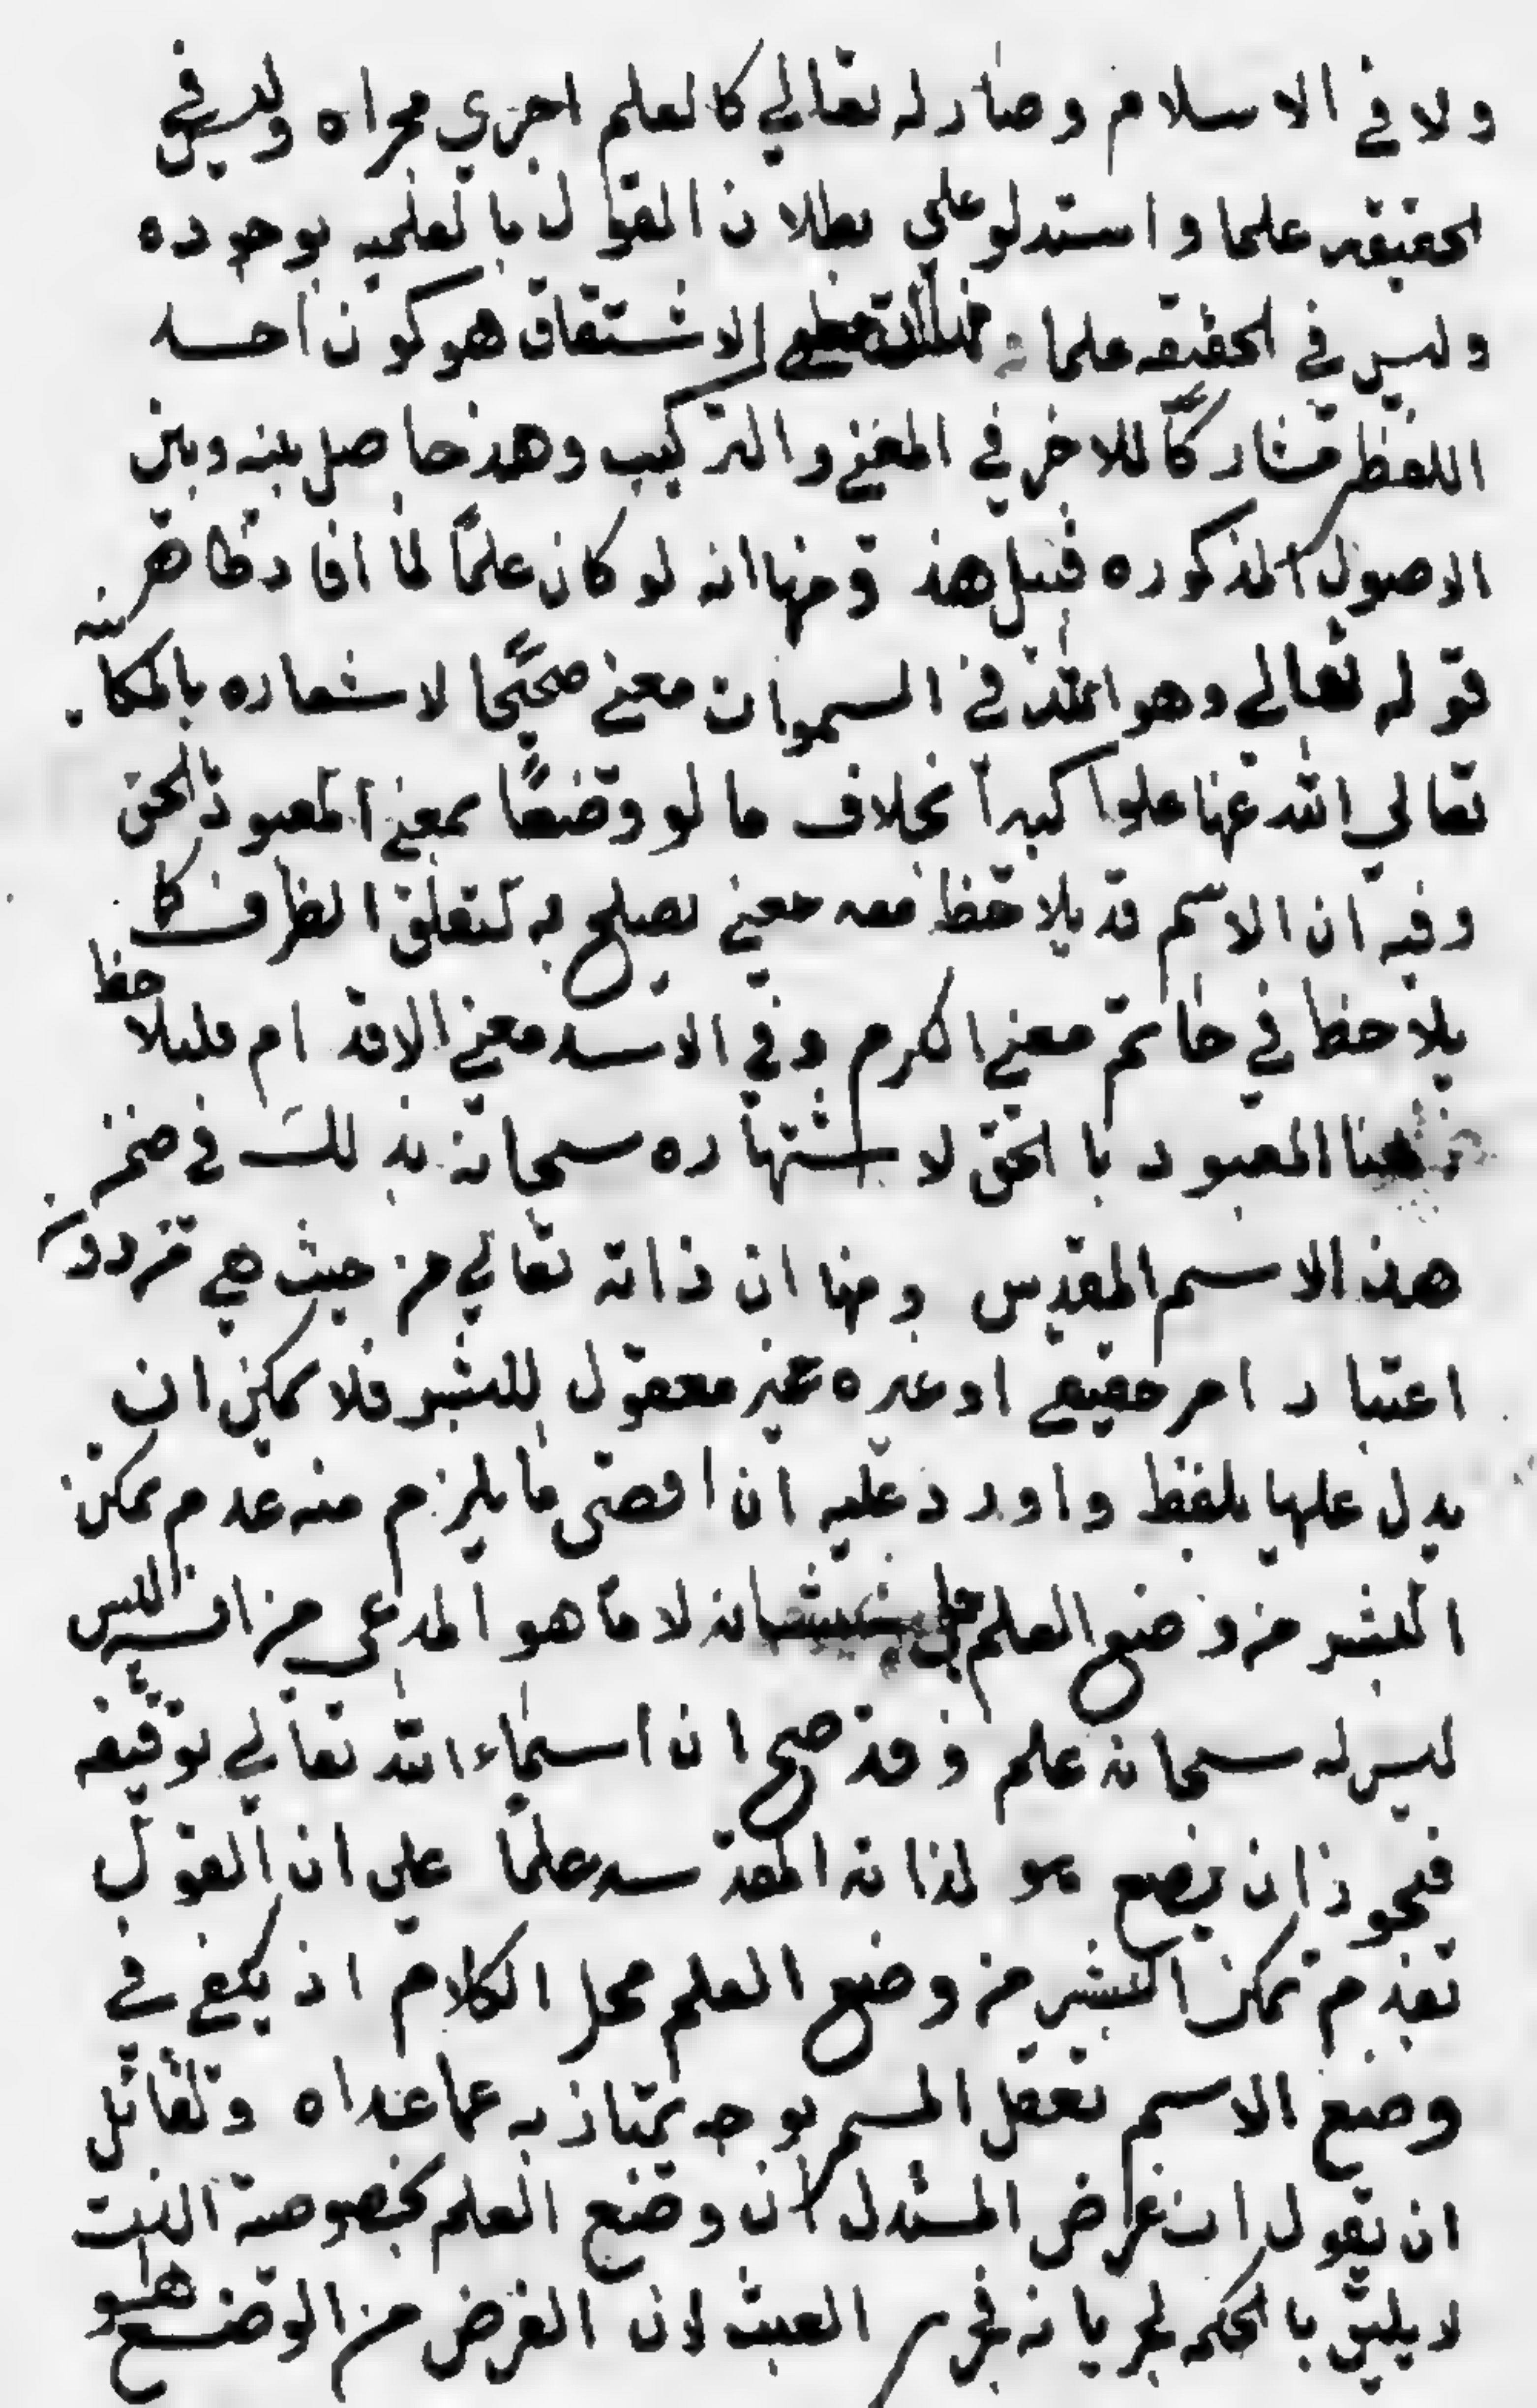 ولا في الاسلام وصار له تعالي كالعلم اجري مجراه وليس في
الحقيقه علما واستدلو علي بطلان القول بالعلميه بوجوده
وليس في الحقيقه علما الاشتقاق هو كون احد
اللفظين مشاركًا للاخر في المعني والتركيب وهذ حاصل بينه وبين
الاصول المذكوره قبل هذ ومنها انه لو كان علمًا لما افاد ظاهر
قوله تعالي وهو الله في السموات معني صحيحًا لاشعاره بالمكانية
تعالي الله عنها علوا كبيرا بخلاف ما لو وضعًا بمعني المعبود بالحق
وفيه ان الاسم قد يلاحظ معه معني يصلح به لتعلق الظرف كا
يلاحظ في حاتم معني اكرم وفي الاسد معني الاقدام فليلاحظ
هنا المعبود بالحق لاشتهاره سبحانه بذلك في ضمن
هذ الاسم المقدس ومنها ان ذاته تعالي من حيث هي من دون
اعتبار امر حقيقي او غيره غير معقول للبشر فلا يمكن ان
يدل عليها بلفظ واورد عليه ان اقصي ما يلزم منه عدم تمكن
البشر من وضع العلم شانه لا ما هو المدعي من انه ليس
ليس له سبحانه علم وقد صح ان اسماء الله تعالي توقيفه
فيجوز ان يضع هو لذاته المقدسه علمًا علي ان القول
بعدم تمكن البشر من وضع العلم محل الكلام اذ يكفي في
وضع الاسم تعقل المسمي بوجه يمتاز به عما عداه ولقائل
ان يقول ان غرض المستدل ان وضع العلم بخصوصية الذت
لا يليق بالحكمه لجريانه مجري العبث لان الغرض من الوضع هو